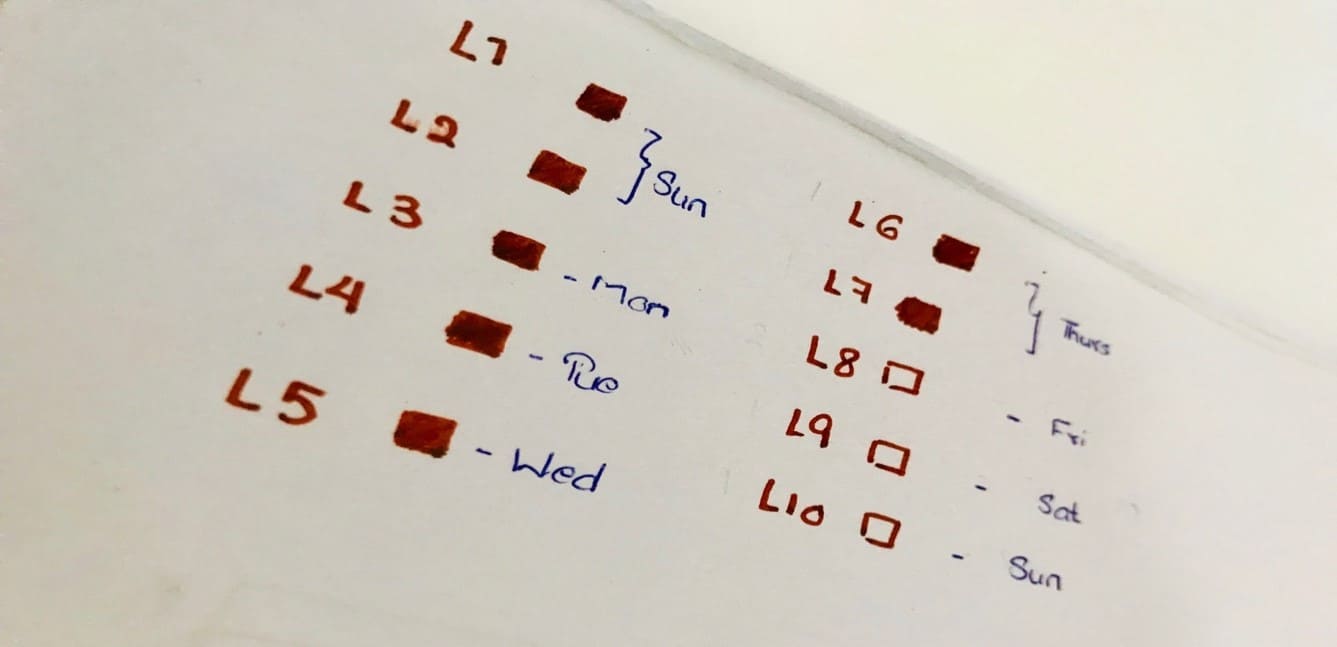 L1
L2
} Sun
L3 - Mon
L4 - Tue
L5 - Wed
L6
L7
} Thurs
L8 - Fri
L9 - Sat
L10 - Sun